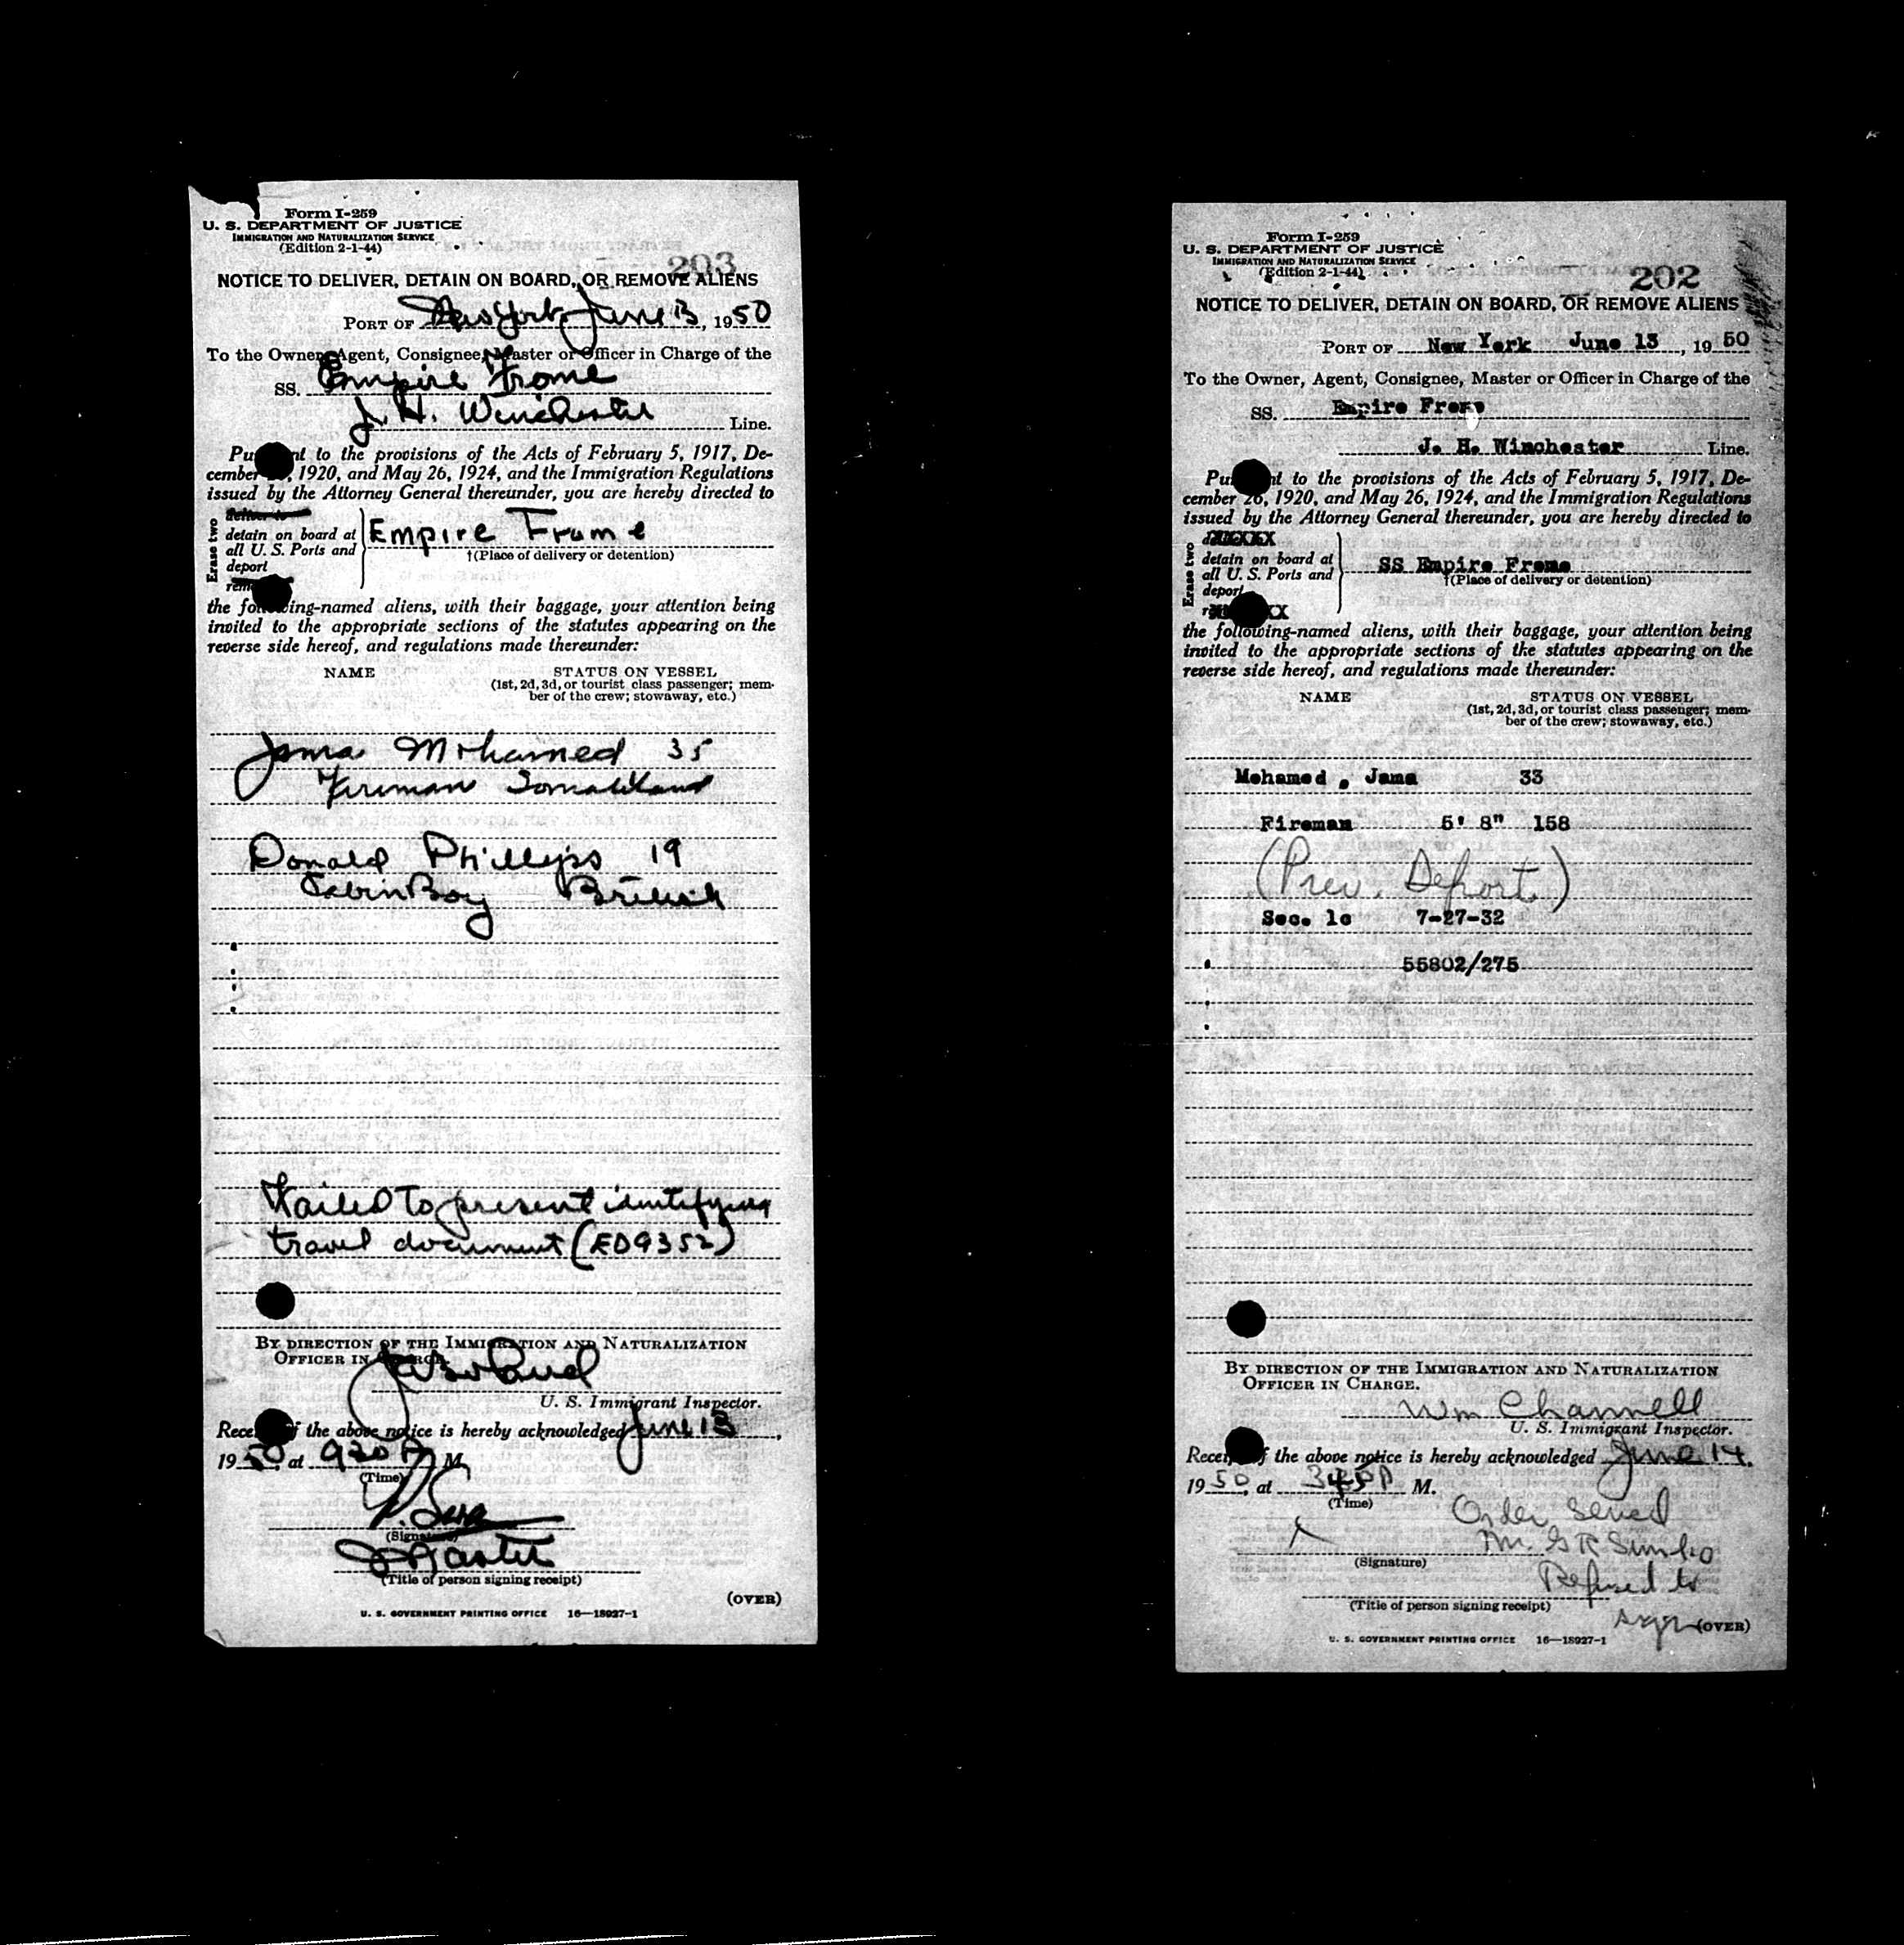 Form I-259
U. S. DEPARTMENT OF JUSTICE
IMMIGRATION AND NATURALIZATION SERVICE
(Edition 2-1-44)
203
NOTICE TO DELIVER, DETAIN ON BOARD, OR REMOVE ALIENS
PORT OF New York June 13, 1950
To the Owner, Agent, Consignee, Master or Officer in Charge of the
SS. Empire Frome
J. H. Winchester Line.
Pu nt to the provisions of the Acts of February 5, 1917, De-
cember , 1920, and May 26, 1924, and the Immigration Regulations
issued by the Attorney General thereunder, you are hereby directed to
Erase two
deliver to
detain on board at
all U. S. Ports and
deport
rem
Empire Frome
†(Place of delivery or detention)
the following-named aliens, with their baggage, your attention being
invited to the appropriate sections of the statutes appearing on the
reverse side hereof, and regulations made thereunder:
NAME STATUS ON VESSEL
(1st, 2d, 3d, or tourist class passenger; mem-
ber of the crew; stowaway, etc.)
Jama Mohamed 35
Fireman Somaliland
Donald Phillips 19
Cabin Boy British
Failed to present identifying
travel document (EO9352)
BY DIRECTION OF THE IMMIGRATION AND NATURALIZATION
OFFICER IN CHARGE.
U. S. Immigrant Inspector.
Rece f the above notice is hereby acknowledged June 13,
1950, at 920 P M.
(Time)
(Signature)
Master
(Title of person signing receipt)
(OVER)
U. S. GOVERNMENT PRINTING OFFICE 16—18927-1
Form I-259
U. S. DEPARTMENT OF JUSTICE
IMMIGRATION AND NATURALIZATION SERVICE
(Edition 2-1-44)
202
NOTICE TO DELIVER, DETAIN ON BOARD, OR REMOVE ALIENS
PORT OF New York June 13, 1950
To the Owner, Agent, Consignee, Master or Officer in Charge of the
SS. Empire Frome
J. H. Winchester Line.
Pu nt to the provisions of the Acts of February 5, 1917, De-
cember 26, 1920, and May 26, 1924, and the Immigration Regulations
issued by the Attorney General thereunder, you are hereby directed to
Erase two
dXXXXX
detain on board at
all U. S. Ports and
deport
r XX
SS Empire Frome
†(Place of delivery or detention)
the following-named aliens, with their baggage, your attention being
invited to the appropriate sections of the statutes appearing on the
reverse side hereof, and regulations made thereunder:
NAME STATUS ON VESSEL
(1st, 2d, 3d, or tourist class passenger; mem-
ber of the crew; stowaway, etc.)
Mohamed , Jama 33
Fireman 5' 8" 158
(Prev. Deport.)
Sec. 1c 7-27-32
55802/275
BY DIRECTION OF THE IMMIGRATION AND NATURALIZATION
OFFICER IN CHARGE.
Wm Channell
U. S. Immigrant Inspector.
Recei f the above notice is hereby acknowledged June 14,
1950, at M.
(Time)
Order Served
Mr. G R
X
(Signature)
Refused to
(Title of person signing receipt)
sign (OVER)
U. S. GOVERNMENT PRINTING OFFICE 16—18927-1